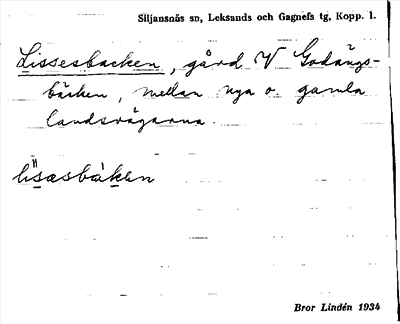 Siljansnäs sn, Leksands och Gagnefs tg, Kopp. l.
Lissesbacken, gård V Godängs-
bäcken, mellan nya o. gamla
landsvägarna.
lisæsbàkεn
Bror Lindén 1934